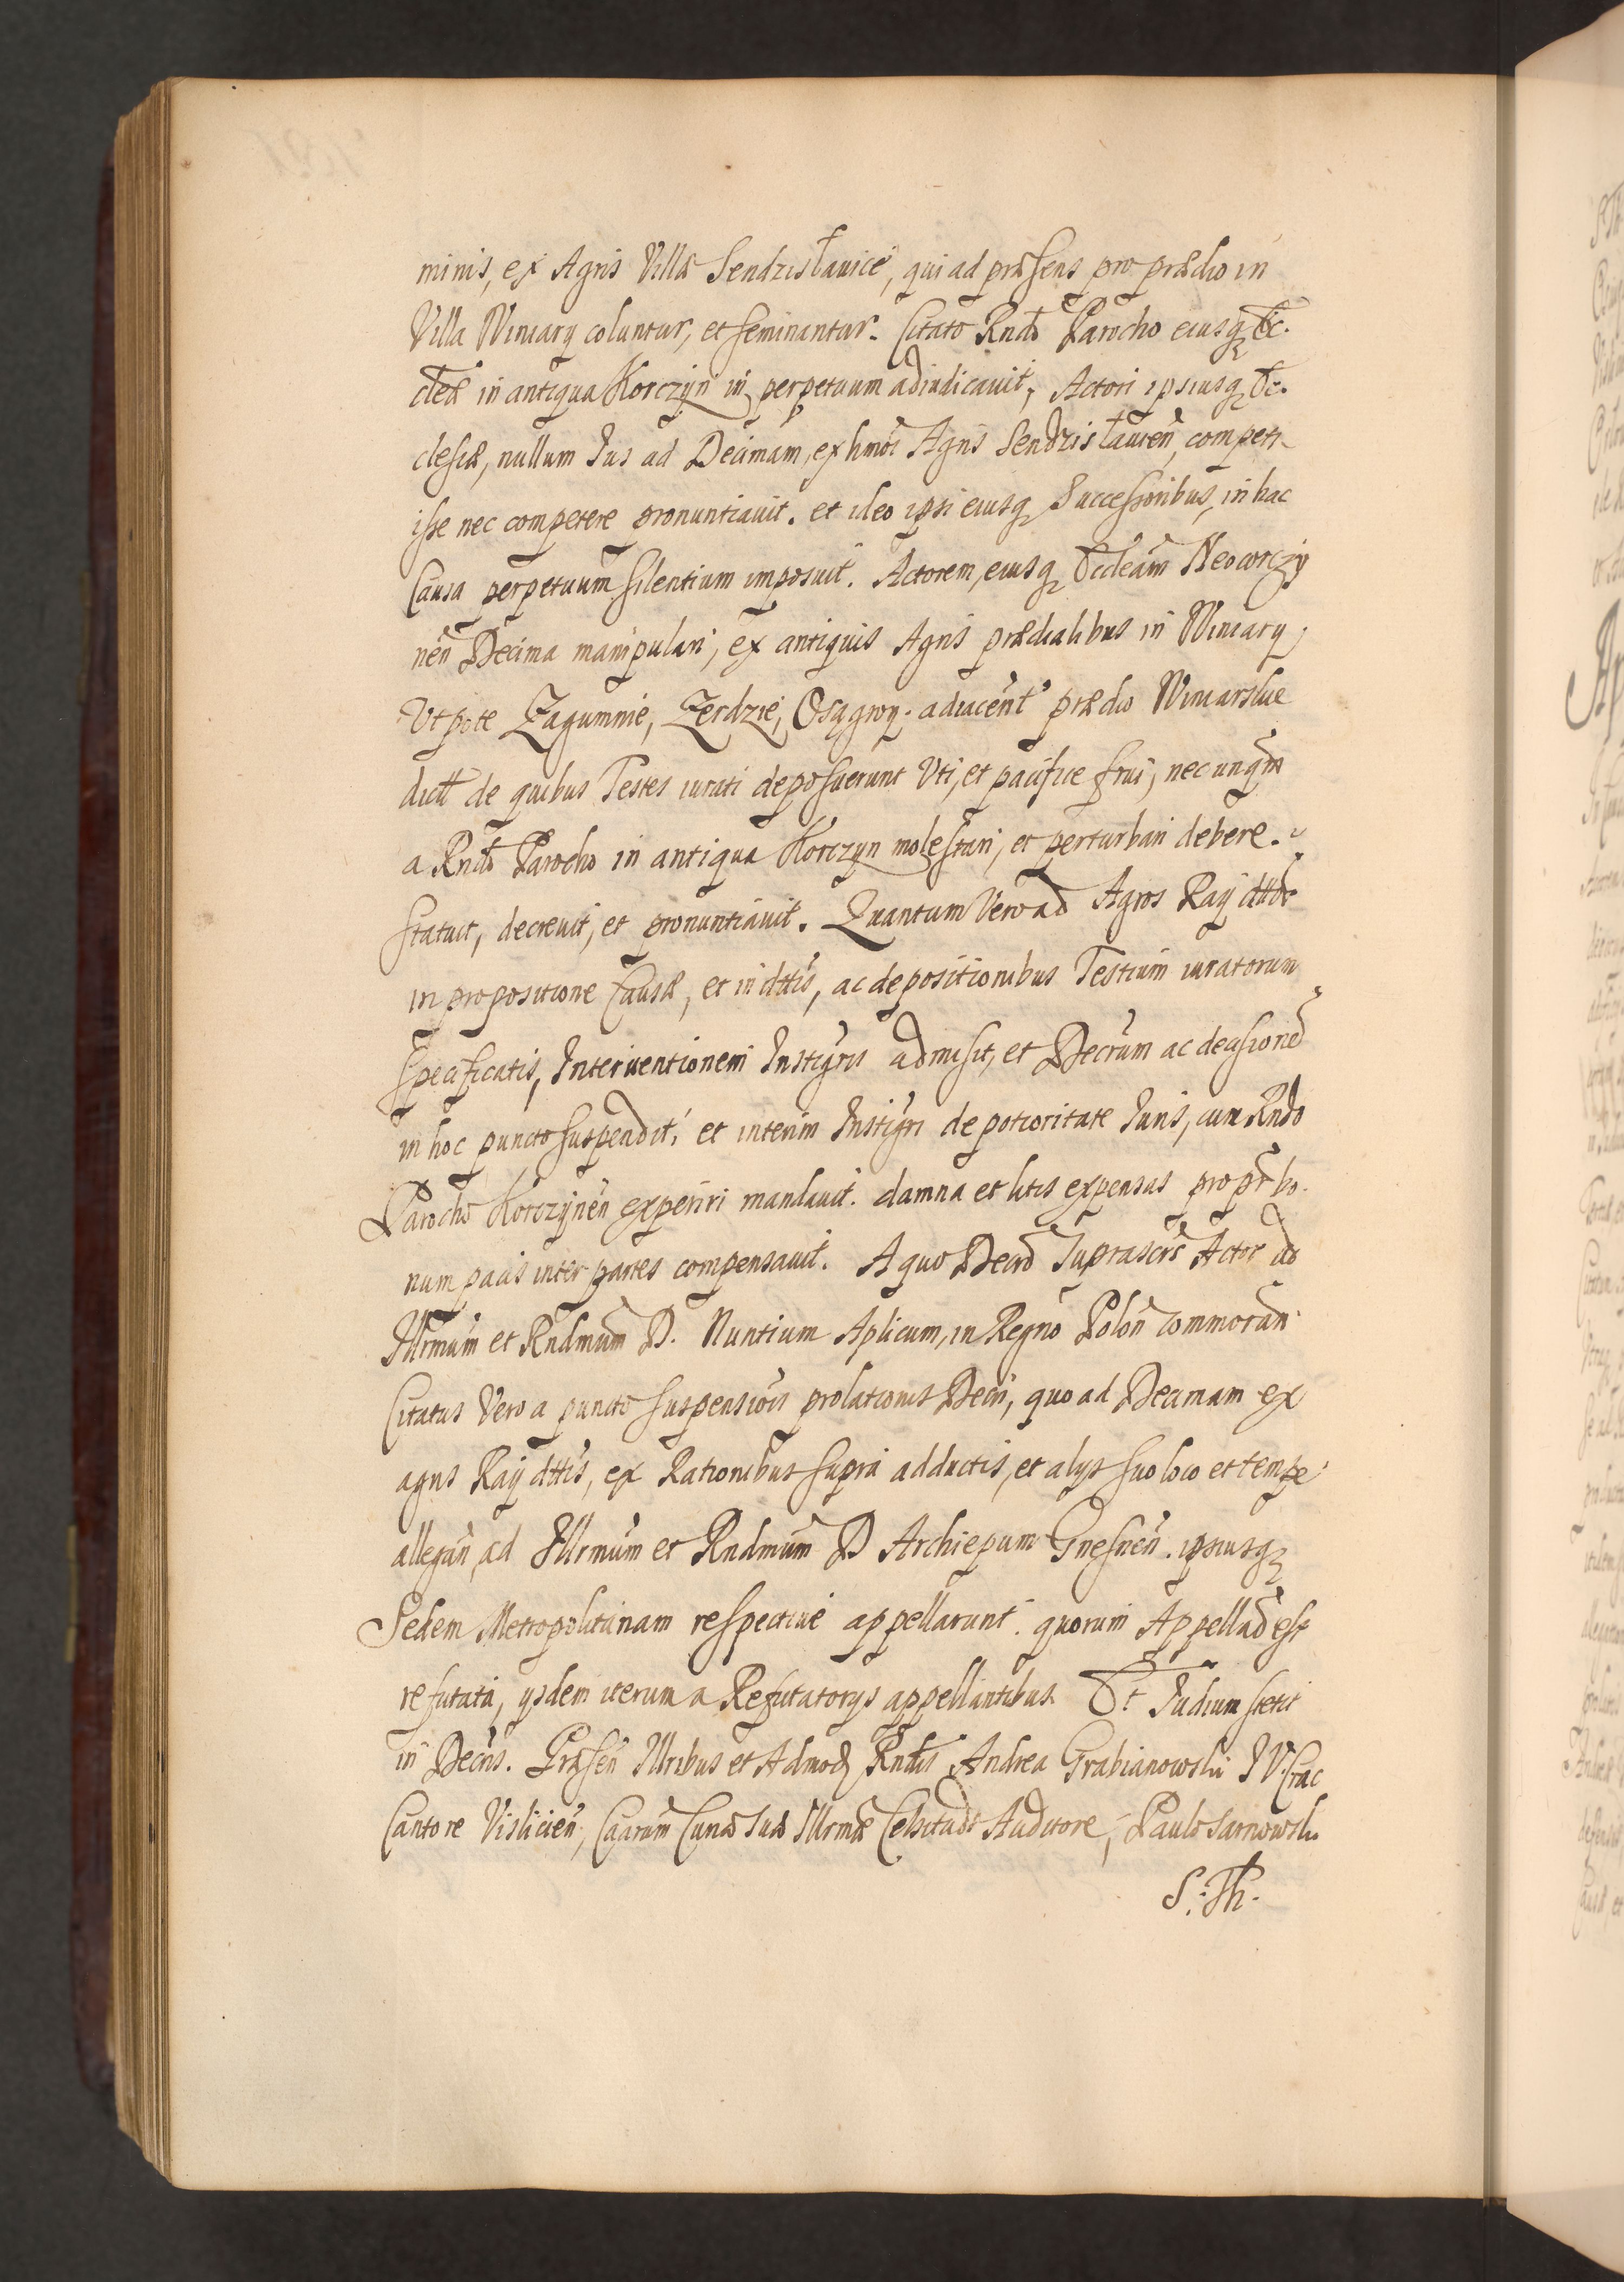 minis, ex Agris Villæ Sendzisłauice, qui ad præsens pro prædio in
Villa Winiary coluntur, et seminantur. Citato Rndo Parocho eiusq Ec-
cleæ in antiqua Korczyn in perpetuum adiudicauit, Actori ipsiusq Ec-
clesiæ, nullum Ius ad Decimam, ex hmoi Agris Sendzisłauicen, competi-
isse nec competere pronuntiauit. et ideo ipsi eiusq Successoribus, in hac
Causa perpetuum silentium imposuit. Actorem, eiusq Eccleam Neocorczy
nen Decima manipulari, ex antiquis Agris prædialibus in Winiary,
Vtpote Zagumnie, Zerdzie, Osągroy. adiacent prædio Winiarskie
dict de quibus Testes iurati deposuerunt Vti, et pacifice frui, nec unqm
a Rndo Parocho in antiqua Korczyn molestari, et perturbari debere.
statuit, decreuit, et pronuntiauit. Quantum Vero ad Agros Ray dttos
in propositione Causæ, et in dttis, ac depositionibus Testium iuratorum
specificatis, Interuentionem Instigris admisit, et Decrum ac decisione
in hoc puncto suspendit, et interim Instigri de potioritate Iuris, cum Rndo
Parocho Korczynen experiri mandauit. damna et litis expensas propr bo-
num pacis inter partes compensauit. A quo Decro Suprascrs Actor ad
Illrmum et Rndmum D. Nuntium Aplicum, in Regno Polon commoran
Citatus Vero a puncto suspensiois prolationis Decri, quo ad Decimam ex
agris Ray dttis, ex Rationibus supra adductis, et alys suo loco et tempe
allegan, ad Illrmum et Rndmum D Archiepum Gnesnen. ipsiusq
Sedem Metropolitanam respectiue appellarunt. quorum Appellao est
refutata, ysdem iterum a Refutatorys appellantibus. Et Iudium stetit
in Decris. Præsen Illribus et Admod Rndis Andrea Grabianowski I V Crac
Cantore Vislicien, Caarum Curiæ Suæ Illrmæ Celsitudis Auditore, Paulo Sarnowski
S. Th.